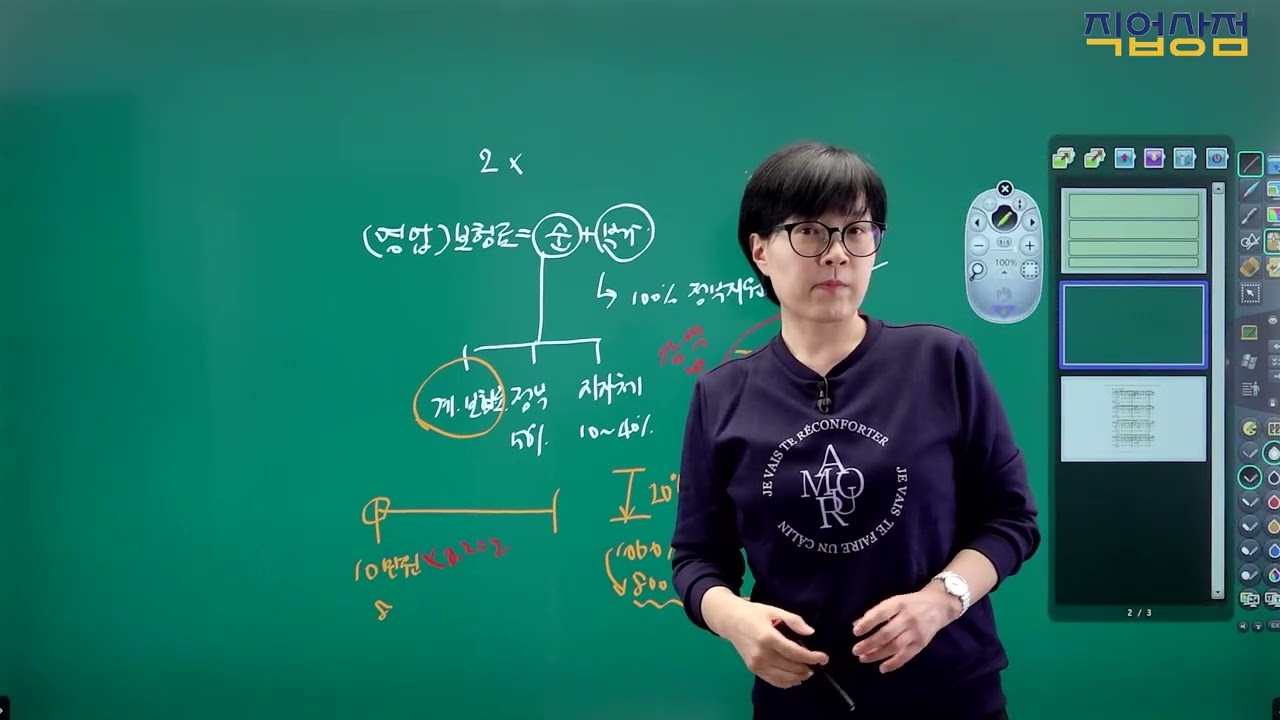 직업상점
2 x
(영업)보험료=순+부가
↳ 100% 정부지원
계.보험료 정부 지자체
50% 10~40%.
20%
10만원×0.2=2
8
800
JE VAIS TE RÉCONFORTER
JE VAIS TE FAIRE UN CALIN
A
MOUR
100%
2 / 3